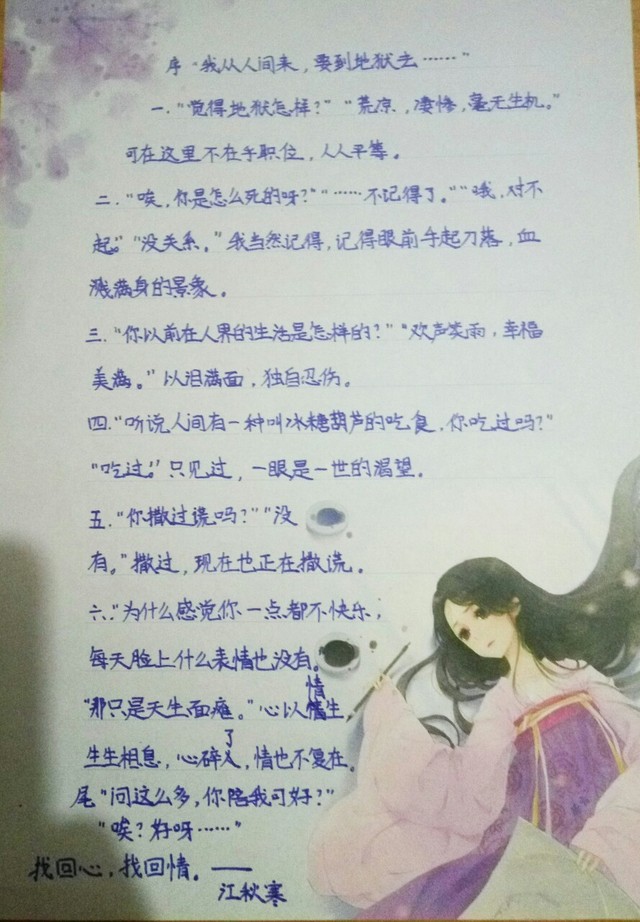 序 “我从人间来，要到地狱去……”
一．“觉得地狱怎样？”“荒凉，凄惨，毫无生机。”
可在这里不在乎职位，人人平等。
二．“唉，你是怎么死的呀？”“……不记得了。”“哦，对不
起。”“没关系。”我当然记得，记得眼前手起刀落，血
溅满身的景象。
三．“你以前在人界的生活是怎样的？”“欢声笑雨，幸福
美满。”以泪满面，独自忍伤。
四．“听说人间有一种叫冰糖葫芦的吃食，你吃过吗？”
“吃过。”只见过，一眼是一世的渴望。
五．“你撒过谎吗？”“没
有。”撒过，现在也正在撒谎。
六．“为什么感觉你一点都不快乐，
每天脸上什么表情也没有。”
“那只是天生面瘫。”心以情生，
生生相息，心碎了，情也不复在。
尾 “问这么多，你陪我可好？”
“唉？好呀……”
找回心，找回情。——
江秋寒